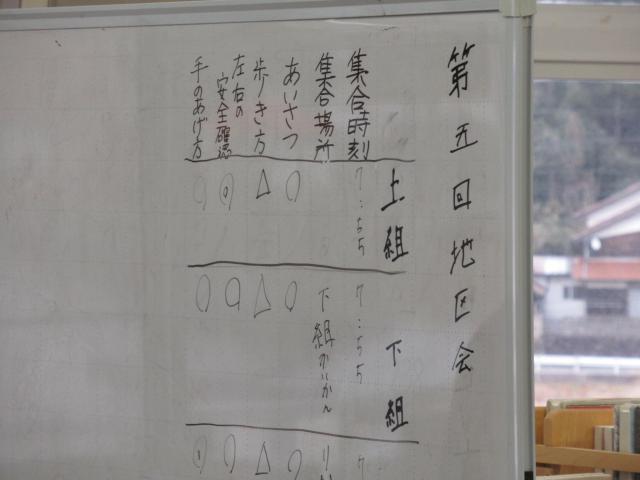 第五回地区会
上組
下組
集合時刻
7:55
7:55
7
集合場所
下組かいかん
り
あいさつ
○
○
○
歩りき方
△
△
△
左右の
安全確認
◎
○
○
手のあげ方
○
○
◎